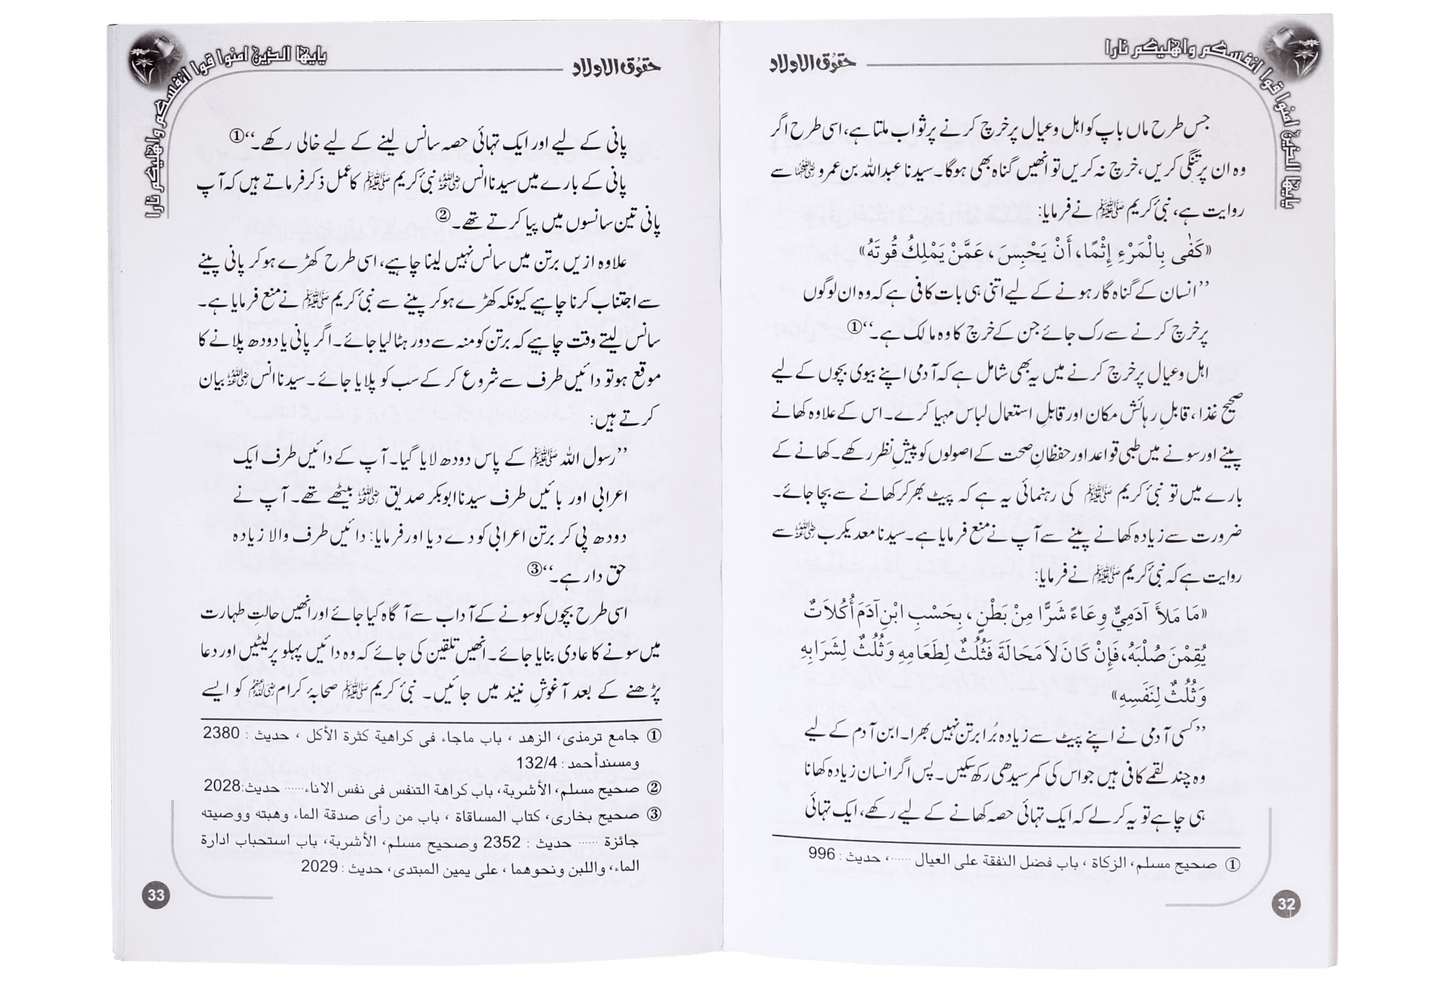 يايها الذين امنوا قوا انفسكم واهليكم نارا
حقوق الاولاد
جس طرح ماں باپ کو اہل و عیال پر خرچ کرنے پر ثواب ملتا ہے، اسی طرح اگر
وہ ان پر تنگی کریں، خرچ نہ کریں تو انھیں گناہ بھی ہوگا۔ سیدنا عبداللہ بن عمرو رضی اللہ عنہما سے
روایت ہے، نبیٔ کریم ﷺ نے فرمایا:
«كَفٰى بِالْمَرْءِ إِثْمًا، أَنْ يَحْبِسَ، عَمَّنْ يَمْلِكُ قُوتَهُ»
’’انسان کے گناہ گار ہونے کے لیے اتنی ہی بات کافی ہے کہ وہ ان لوگوں
پر خرچ کرنے سے رک جائے جن کے خرچ کا وہ مالک ہے۔‘‘①
اہل و عیال پر خرچ کرنے میں یہ بھی شامل ہے کہ آدمی اپنے بیوی بچوں کے لیے
صحیح غذا، قابلِ رہائش مکان اور قابلِ استعمال لباس مہیا کرے۔ اس کے علاوہ کھانے
پینے اور سونے میں طبی قواعد اور حفظانِ صحت کے اصولوں کو پیشِ نظر رکھے۔ کھانے کے
بارے میں تو نبیٔ کریم ﷺ کی رہنمائی یہ ہے کہ پیٹ بھر کر کھانے سے بچا جائے۔
ضرورت سے زیادہ کھانے پینے سے آپ نے منع فرمایا ہے۔ سیدنا معدیکرب رضی اللہ عنہ سے
روایت ہے کہ نبیٔ کریم ﷺ نے فرمایا:
«مَا مَلأَ آدَمِيٌّ وِعَاءً شَرًّا مِنْ بَطْنٍ، بِحَسْبِ ابْنِ آدَمَ أُكُلاَتٌ
يُقِمْنَ صُلْبَهُ، فَإِنْ كَانَ لاَ مَحَالَةَ فَثُلُثٌ لِطَعَامِهِ وَثُلُثٌ لِشَرَابِهِ
وَثُلُثٌ لِنَفَسِهِ»
’’کسی آدمی نے اپنے پیٹ سے زیادہ بُرا برتن نہیں بھرا۔ ابن آدم کے لیے
وہ چند لقمے کافی ہیں جو اس کی کمر سیدھی رکھ سکیں۔ پس اگر انسان زیادہ کھانا
ہی چاہے تو یہ کر لے کہ ایک تہائی حصہ کھانے کے لیے رکھے، ایک تہائی
① صحیح مسلم، الزکاة ، باب فضل النفقة علی العیال ......، حدیث : 996
32
يايها الذين امنوا قوا انفسكم واهليكم نارا
حقوق الاولاد
پانی کے لیے اور ایک تہائی حصہ سانس لینے کے لیے خالی رکھے۔‘‘①
پانی کے بارے میں سیدنا انس رضی اللہ عنہ نبیٔ کریم ﷺ کا عمل ذکر فرماتے ہیں کہ آپ
پانی تین سانسوں میں پیا کرتے تھے۔②
علاوہ ازیں برتن میں سانس نہیں لینا چاہیے، اسی طرح کھڑے ہو کر پانی پینے
سے اجتناب کرنا چاہیے کیونکہ کھڑے ہو کر پینے سے نبیٔ کریم ﷺ نے منع فرمایا ہے۔
سانس لیتے وقت چاہیے کہ برتن کو منہ سے دور ہٹا لیا جائے۔ اگر پانی یا دودھ پلانے کا
موقع ہو تو دائیں طرف سے شروع کر کے سب کو پلایا جائے۔ سیدنا انس رضی اللہ عنہ بیان
کرتے ہیں:
’’رسول اللہ ﷺ کے پاس دودھ لایا گیا۔ آپ کے دائیں طرف ایک
اعرابی اور بائیں طرف سیدنا ابوبکر صدیق رضی اللہ عنہ بیٹھے تھے۔ آپ نے
دودھ پی کر برتن اعرابی کو دے دیا اور فرمایا: دائیں طرف والا زیادہ
حق دار ہے۔‘‘③
اسی طرح بچوں کو سونے کے آداب سے آگاہ کیا جائے اور انھیں حالتِ طہارت
میں سونے کا عادی بنایا جائے۔ انھیں تلقین کی جائے کہ وہ دائیں پہلو پر لیٹیں اور دعا
پڑھنے کے بعد آغوشِ نیند میں جائیں۔ نبیٔ کریم ﷺ صحابۂ کرام رضی اللہ عنہم کو ایسے
① جامع ترمذی، الزهد ، باب ماجاء فی کراهية کثرة الأکل ، حدیث : 2380
ومسندأحمد : 132/4
② صحیح مسلم، الأشربة، باب کراهة التنفس فی نفس الاناء...... حدیث:2028
③ صحیح بخاری، کتاب المساقاة ، باب من رأی صدقة الماء وهبته ووصيته
جائزة ...... حدیث : 2352 وصحیح مسلم، الأشربة، باب استحباب ادارة
الماء، واللبن ونحوهما ، علی یمین المبتدی، حدیث : 2029
33